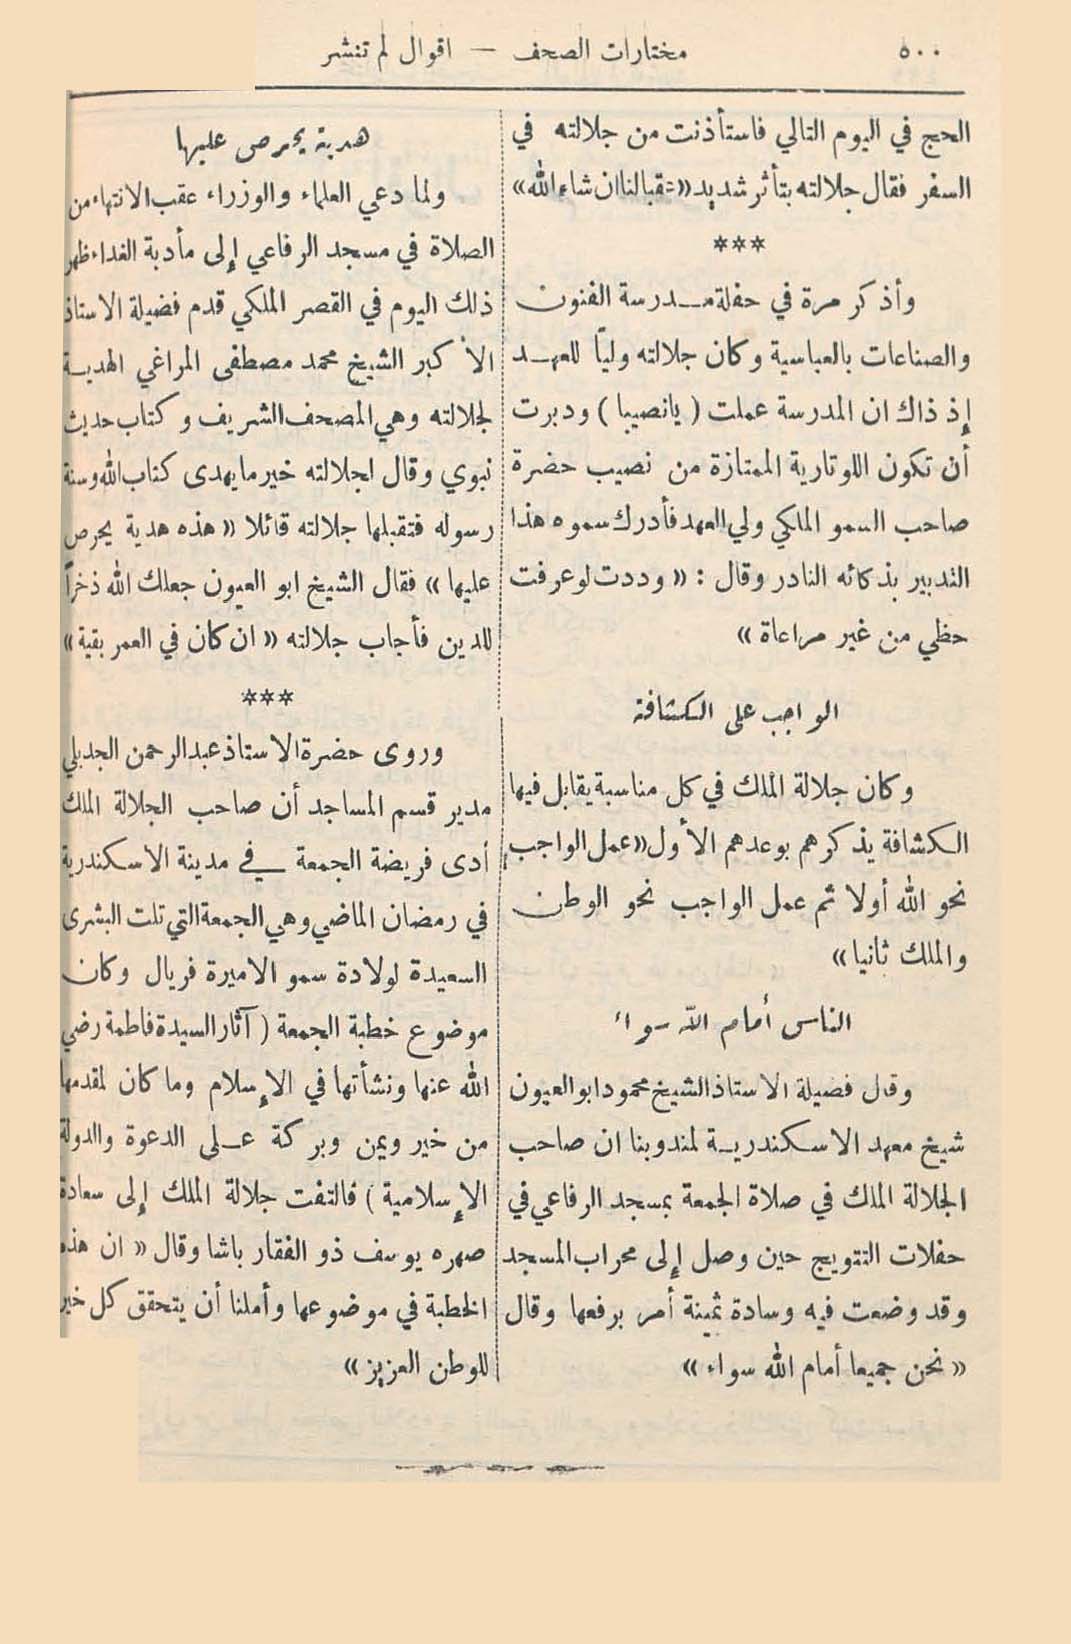 ٥٠٠
مختارات الصحف — اقوال لم تنشر
الحج في اليوم التالي فاستأذنت من جلالته في
السفر فقال جلالته بتأثر شديد «عقبا لنا ان شاء الله»
***
وأذكر مرة في حفلة مدرسة الفنون
والصناعات بالعباسية وكان جلالته وليًا للعهد
إذ ذاك ان المدرسة عملت (يانصيبا) ودبرت
أن تكون اللوتارية الممتازة من نصيب حضرة
صاحب السمو الملكي ولي العهد فأدرك سموه هذا
التدبير بذكائه النادر وقال : «وددت لو عرفت
حظي من غير مراعاة»
الواجب على الكشافة
وكان جلالة الملك في كل مناسبة يقابل فيها
الكشافة يذكرهم بوعدهم الأول «عمل الواجب
نحو الله أولا ثم عمل الواجب نحو الوطن
والملك ثانيا»
الناس أمام الله سواء
وقال فضيلة الاستاذ الشيخ محمود ابو العيون
شيخ معهد الاسكندرية لمندوبنا ان صاحب
الجلالة الملك في صلاة الجمعة بمسجد الرفاعي في
حفلات التتويج حين وصل إلى محراب المسجد
وقد وضعت فيه وسادة ثمينة أمر برفعها وقال
«نحن جميعا أمام الله سواء»
هدية يحرص عليها
ولما دعي العلماء والوزراء عقب الانتهاء من
الصلاة في مسجد الرفاعي إلى مأدبة الغداء ظهر
ذلك اليوم في القصر الملكي قدم فضيلة الاستاذ
الأكبر الشيخ محمد مصطفى المراغي الهدية
لجلالته وهي المصحف الشريف وكتاب حديث
نبوي وقال لجلالته خير ما يهدى كتاب الله وسنة
رسوله فتقبلها جلالته قائلا «هذه هدية يحرص
عليها» فقال الشيخ ابو العيون جعلك الله ذخرًا
للدين فأجاب جلالته «ان كان في العمر بقية»
***
وروى حضرة الاستاذ عبد الرحمن الجديلي
مدير قسم المساجد أن صاحب الجلالة الملك
أدى فريضة الجمعة في مدينة الاسكندرية
في رمضان الماضي وهي الجمعة التي تلت البشرى
السعيدة لولادة سمو الاميرة فريال وكان
موضوع خطبة الجمعة (آثار السيدة فاطمة رضي
الله عنها ونشأتها في الإسلام وما كان لمقدمها
من خير ويمن وبركة على الدعوة والدولة
الإسلامية) فالتفت جلالة الملك إلى سعادة
صهره يوسف ذو الفقار باشا وقال «ان هذه
الخطبة في موضوعها وأملنا أن يتحقق كل خير
للوطن العزيز»